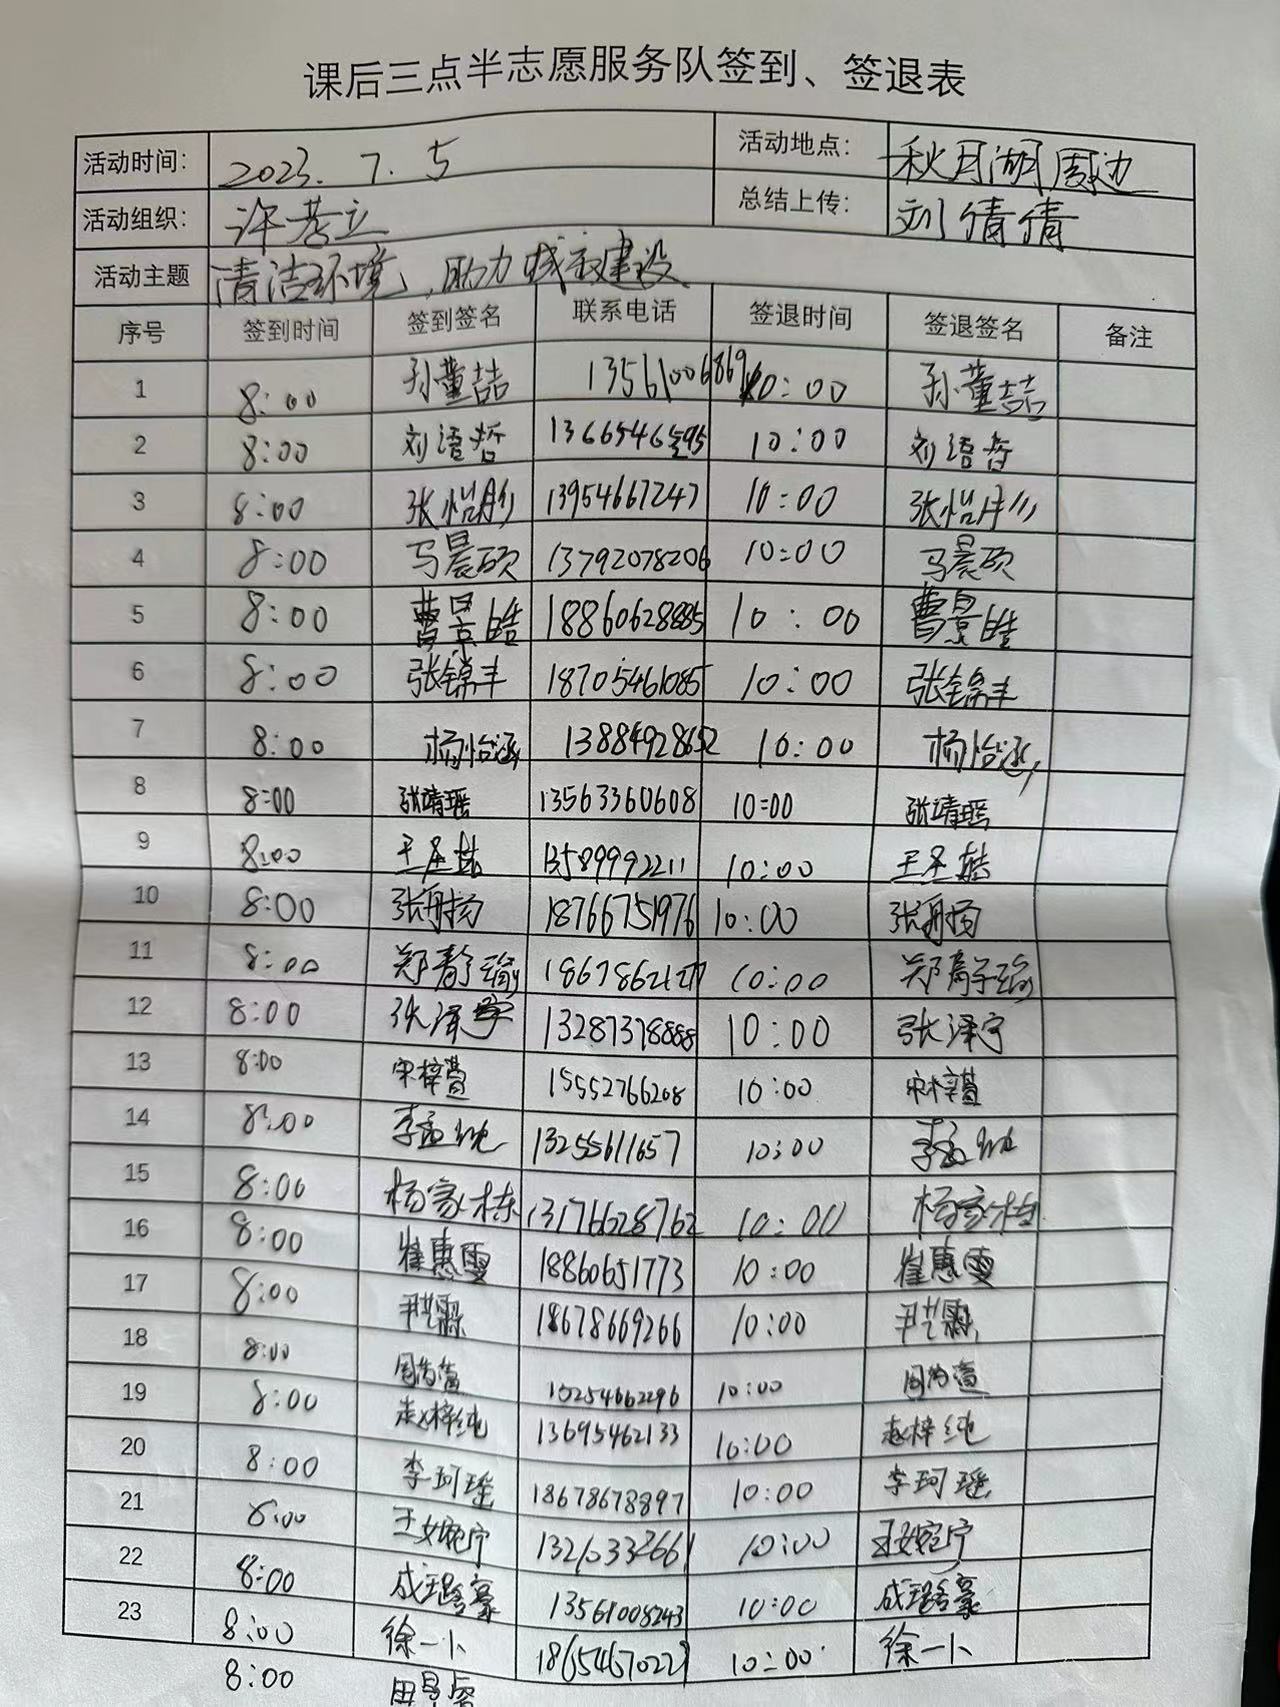 课后三点半志愿服务队签到、签退表
活动时间: 2023. 7. 5 活动地点: 秋月湖周边
活动组织: 许 立 总结上传: 刘倩倩
活动主题 清洁环境,助力城市建设
序号 签到时间 签到签名 联系电话 签退时间 签退签名 备注
1 8:00 孙董喆 13561006869 10:00 孙董喆
2 8:00 刘语哲 10:00 刘语哲
3 8:00 张怡彤 13954667247 10:00 张怡彤
4 8:00 马晨硕 13792078206 10:00 马晨硕
5 8:00 曹景皓 18860628885 10:00 曹景皓
6 8:00 张锦丰 18705461085 10:00 张锦丰
7 8:00 杨怡涵 10:00 杨怡涵
8 8:00 张靖瑶 13563360608 10:00 张靖瑶
9 8:00 王圣喆 13589992211 10:00 王圣喆
10 8:00 张舟扬 18766751976 10:00 张舟扬
11 8:00 郑静瑜 18678621277 10:00 郑静瑜
12 8:00 张泽宇 13287378888 10:00 张泽宇
13 8:00 宋梓萱 15552766208 10:00 宋梓萱
14 8:00 李孟纯 13255611657 10:00 李孟纯
15 8:00 杨家栋 13176628762 10:00 杨家栋
16 8:00 崔惠雯 18860651773 10:00 崔惠雯
17 8:00 尹艺霖 18678669266 10:00 尹艺霖
18 8:00 周 萱 10:00 周 萱
19 8:00 赵梓纯 13695462133 10:00 赵梓纯
20 8:00 李珂瑶 18678678897 10:00 李珂瑶
21 8:00 王婉宁 13210332661 10:00 王婉宁
22 8:00 成璐豪 13561008243 10:00 成璐豪
23 8:00 徐一卜 10:00 徐一卜
8:00